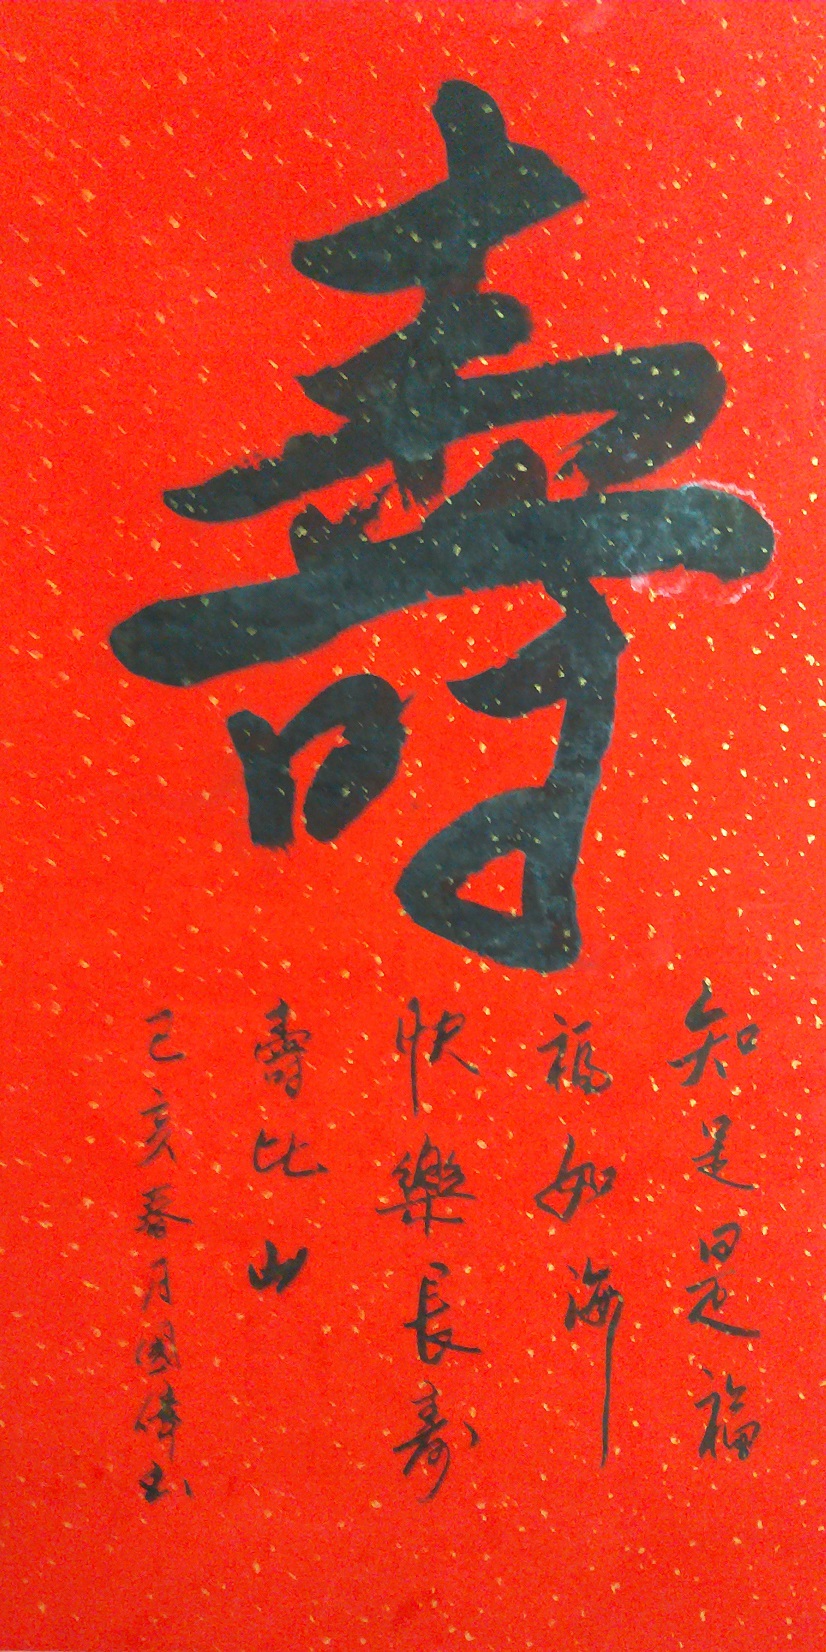 壽
知足是福
福如海
快樂長寿
壽比山
己亥春月國偉书